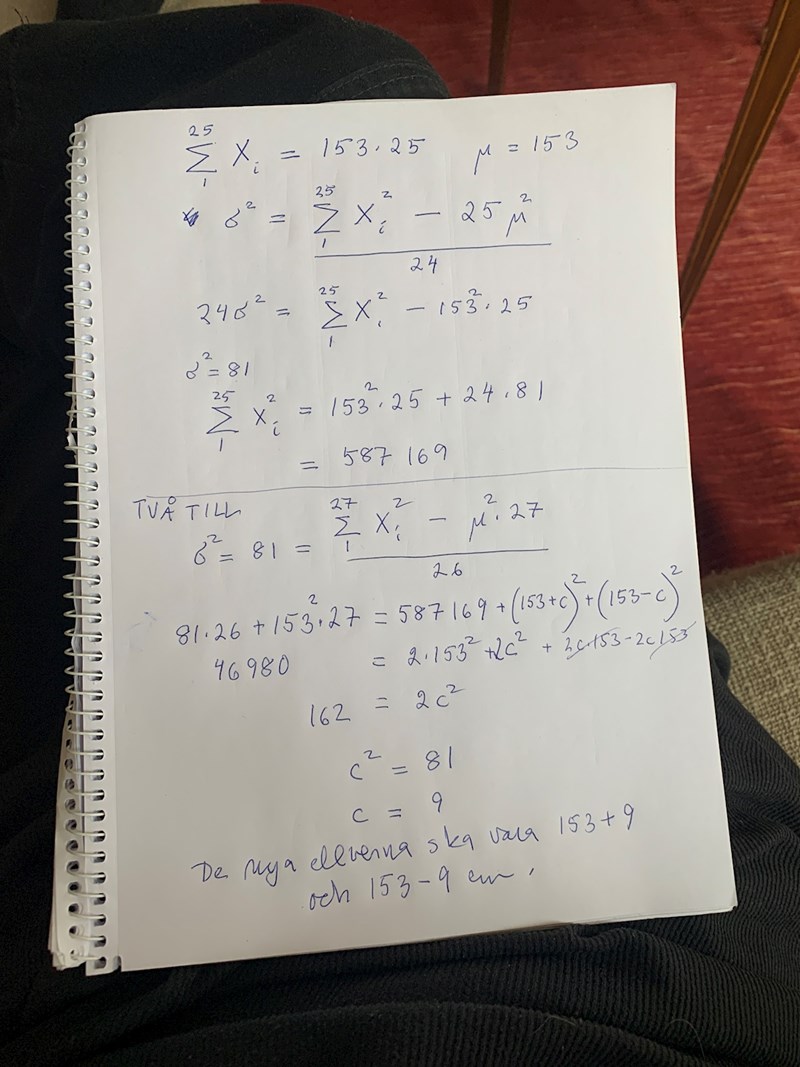 25
∑ Xᵢ = 153·25   μ = 153
1
σ² = (∑₁²⁵ Xᵢ² − 25 μ²) / 24
24σ² = ∑₁²⁵ Xᵢ² − 153²·25
σ² = 81
∑₁²⁵ Xᵢ² = 153²·25 + 24·81
= 587 169
TVÅ TILL
σ² = 81 = (∑₁²⁷ Xᵢ² − μ²·27) / 26
81·26 + 153²·27 = 587 169 + (153+c)² + (153−c)²
46980 = 2·153² + 2c² + 2c·153 − 2c153
162 = 2c²
c² = 81
c = 9
De nya eleverna ska vara 153+9
och 153−9 cm.